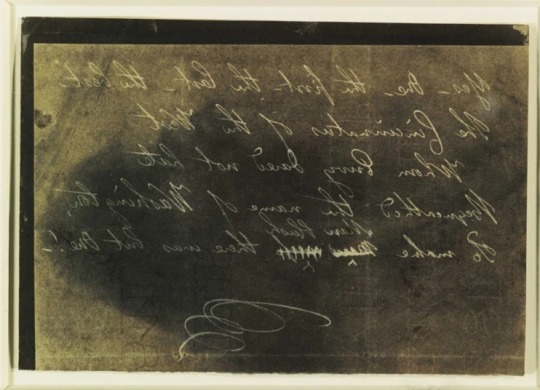 Yes – One – the first – the last – the best –
The Cincinnatus of the West
Whom Envy dared not hate
Bequeathed the name of Washington,
Man blush
To make there was but One! –